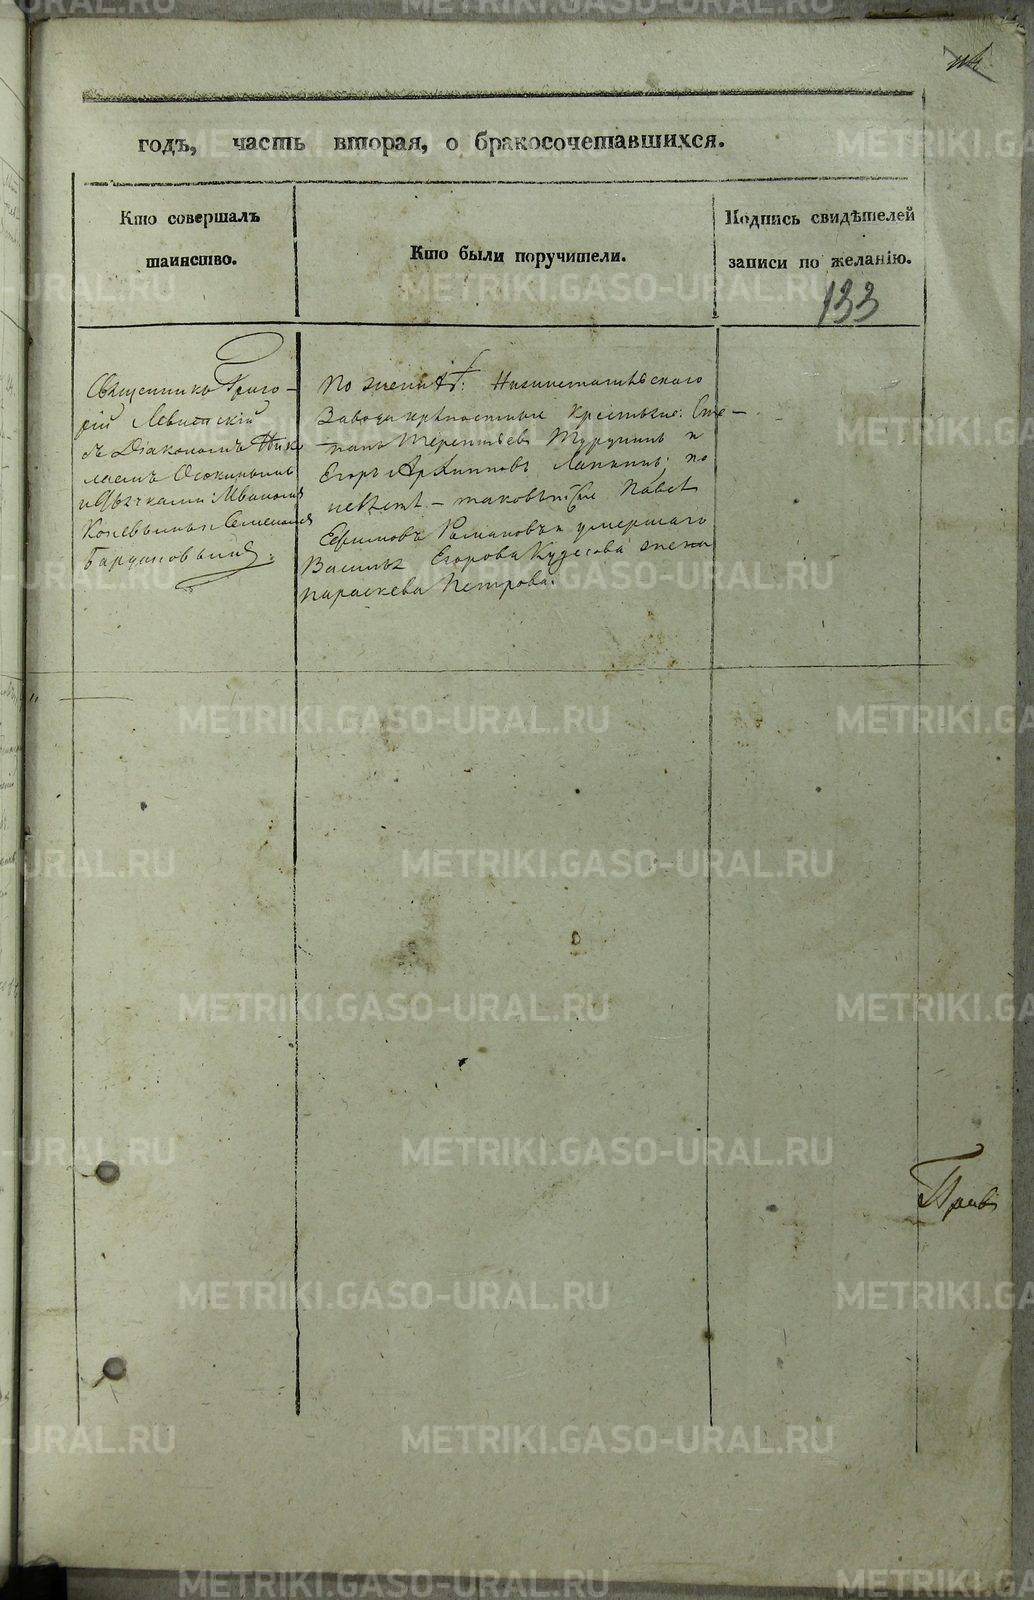 годъ, часть вторая, о бракосочетавшихся.
Кто совершалъ
таинство.
Кто были поручители.
Подпись свидѣтелей
записи по желанію.
133
Священникъ Григо-
рій Левитскій
съ Діакономъ Ник
лаемъ Осокинымъ
Иваномъ
и Семеномъ
По женихѣ: Нижнетагильскаго
Завода крѣпостные крестьяне: Сте-
панъ Терентьевъ и
Егоръ Архиповъ Лапинъ; по
невѣстѣ - таковые Павелъ
Ефимовъ Романовъ и умершаго
Василья Егорова Кудесова жена
Параскева Петрова.
METRIKI.GASO-URAL.RU